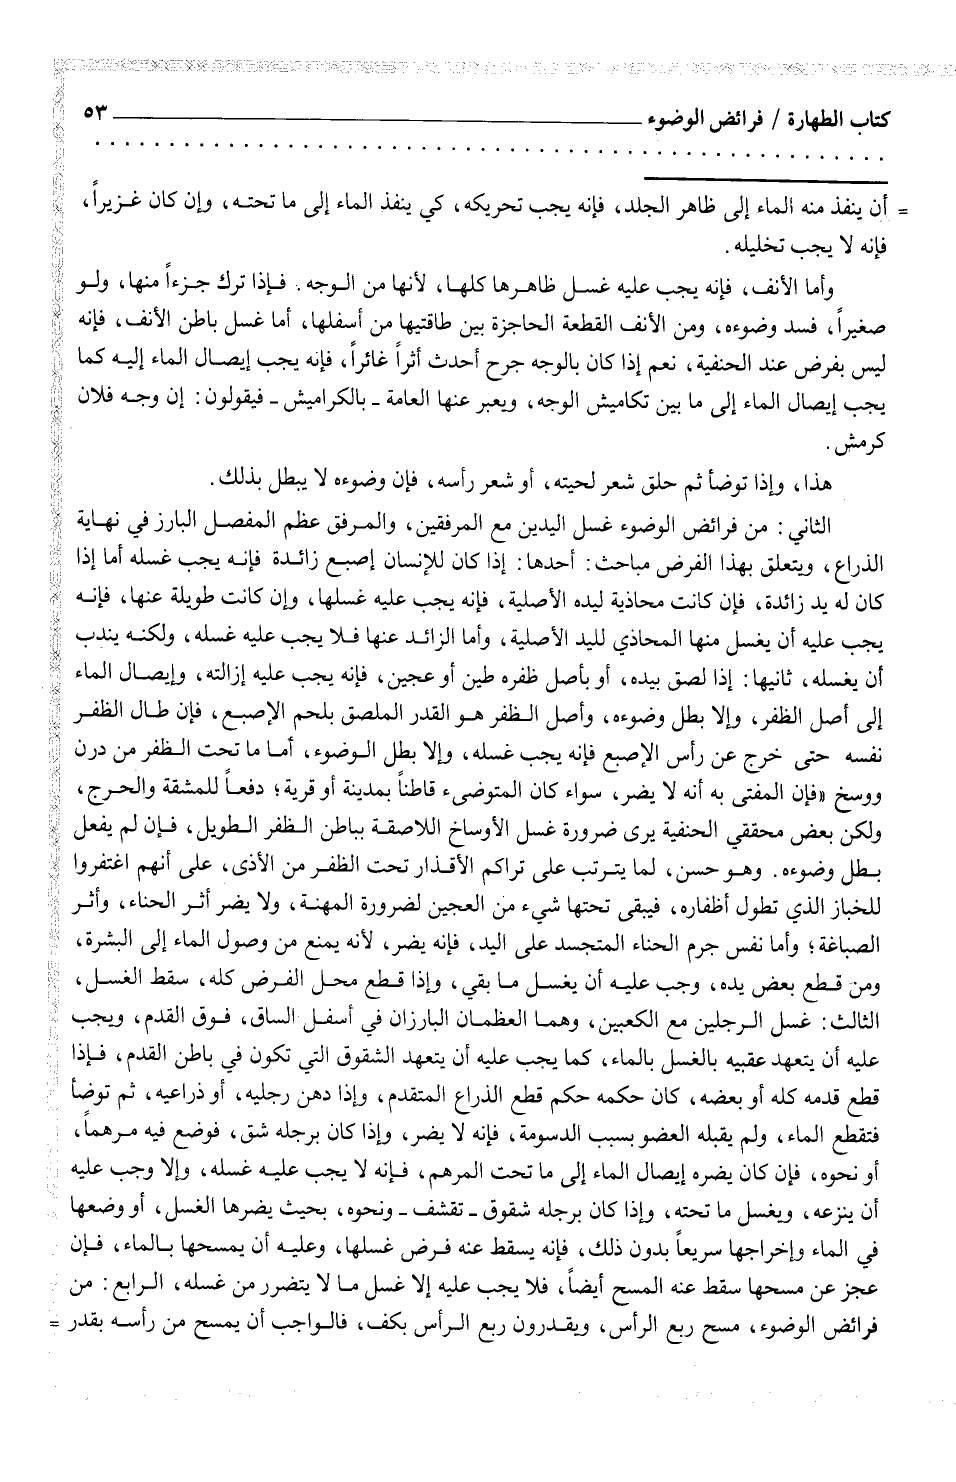 كتاب الطهارة / فرائض الوضوء ٥٣
= أن ينفذ منه الماء إلى ظاهر الجلد، فإنه يجب تحريكه، كي ينفذ الماء إلى ما تحته، وإن كان غزيراً،
فإنه لا يجب تخليله.
وأما الأنف، فإنه يجب عليه غسل ظاهرها كلها، لأنها من الوجه. فإذا ترك جزءاً منها، ولو
صغيراً، فسد وضوءه، ومن الأنف القطعة الحاجزة بين طاقتيها من أسفلها، أما غسل باطن الأنف، فإنه
ليس بفرض عند الحنفية، نعم إذا كان بالوجه جرح أحدث أثراً غائراً، فإنه يجب إيصال الماء إليه كما
يجب إيصال الماء إلى ما بين تكاميش الوجه، ويعبر عنها العامة ـ بالكراميش ـ فيقولون: إن وجه فلان
كرمش.
هذا، وإذا توضأ ثم حلق شعر لحيته، أو شعر رأسه، فإن وضوءه لا يبطل بذلك.
الثاني: من فرائض الوضوء غسل اليدين مع المرفقين، والمرفق عظم المفصل البارز في نهاية
الذراع، ويتعلق بهذا الفرض مباحث: أحدها: إذا كان للإنسان إصبع زائدة فإنه يجب غسله أما إذا
كان له يد زائدة، فإن كانت محاذية ليده الأصلية، فإنه يجب عليه غسلها، وإن كانت طويلة عنها، فإنه
يجب عليه أن يغسل منها المحاذي لليد الأصلية، وأما الزائد عنها فلا يجب عليه غسله، ولكنه يندب
أن يغسله، ثانيها: إذا لصق بيده، أو بأصل ظفره طين أو عجين، فإنه يجب عليه إزالته، وإيصال الماء
إلى أصل الظفر، وإلا بطل وضوءه، وأصل الظفر هو القدر الملصق بلحم الإصبع، فإن طال الظفر
نفسه حتى خرج عن رأس الإصبع فإنه يجب غسله، وإلا بطل الوضوء، أما ما تحت الظفر من درن
ووسخ «فإن المفتى به أنه لا يضر، سواء كان المتوضىء قاطناً بمدينة أو قرية؛ دفعاً للمشقة والحرج،
ولكن بعض محققي الحنفية يرى ضرورة غسل الأوساخ اللاصقة بباطن الظفر الطويل، فإن لم يفعل
بطل وضوءه. وهو حسن، لما يترتب على تراكم الأقذار تحت الظفر من الأذى، على أنهم اغتفروا
للخباز الذي تطول أظفاره، فيبقى تحتها شيء من العجين لضرورة المهنة، ولا يضر أثر الحناء، وأثر
الصباغة؛ وأما نفس جرم الحناء المتجسد على اليد، فإنه يضر، لأنه يمنع من وصول الماء إلى البشرة،
ومن قطع بعض يده، وجب عليه أن يغسل ما بقي، وإذا قطع محل الفرض كله، سقط الغسل،
الثالث: غسل الرجلين مع الكعبين، وهما العظمان البارزان في أسفل الساق، فوق القدم، ويجب
عليه أن يتعهد عقبيه بالغسل بالماء، كما يجب عليه أن يتعهد الشقوق التي تكون في باطن القدم، فإذا
قطع قدمه كله أو بعضه، كان حكمه حكم قطع الذراع المتقدم، وإذا دهن رجليه، أو ذراعيه، ثم توضأ
فتقطع الماء، ولم يقبله العضو بسبب الدسومة، فإنه لا يضر، وإذا كان برجله شق، فوضع فيه مرهماً،
أو نحوه، فإن كان يضره إيصال الماء إلى ما تحت المرهم، فإنه لا يجب عليه غسله، وإلا وجب عليه
أن ينزعه، ويغسل ما تحته، وإذا كان برجله شقوق ـ تقشف ـ ونحوه، بحيث يضرها الغسل، أو وضعها
في الماء وإخراجها سريعاً بدون ذلك، فإنه يسقط عنه فرض غسلها، وعليه أن يمسحها بالماء، فإن
عجز عن مسحها سقط عنه المسح أيضاً، فلا يجب عليه إلا غسل ما لا يتضرر من غسله، الرابع: من
فرائض الوضوء، مسح ربع الرأس، ويقدرون ربع الرأس بكف، فالواجب أن يمسح من رأسه بقدر =